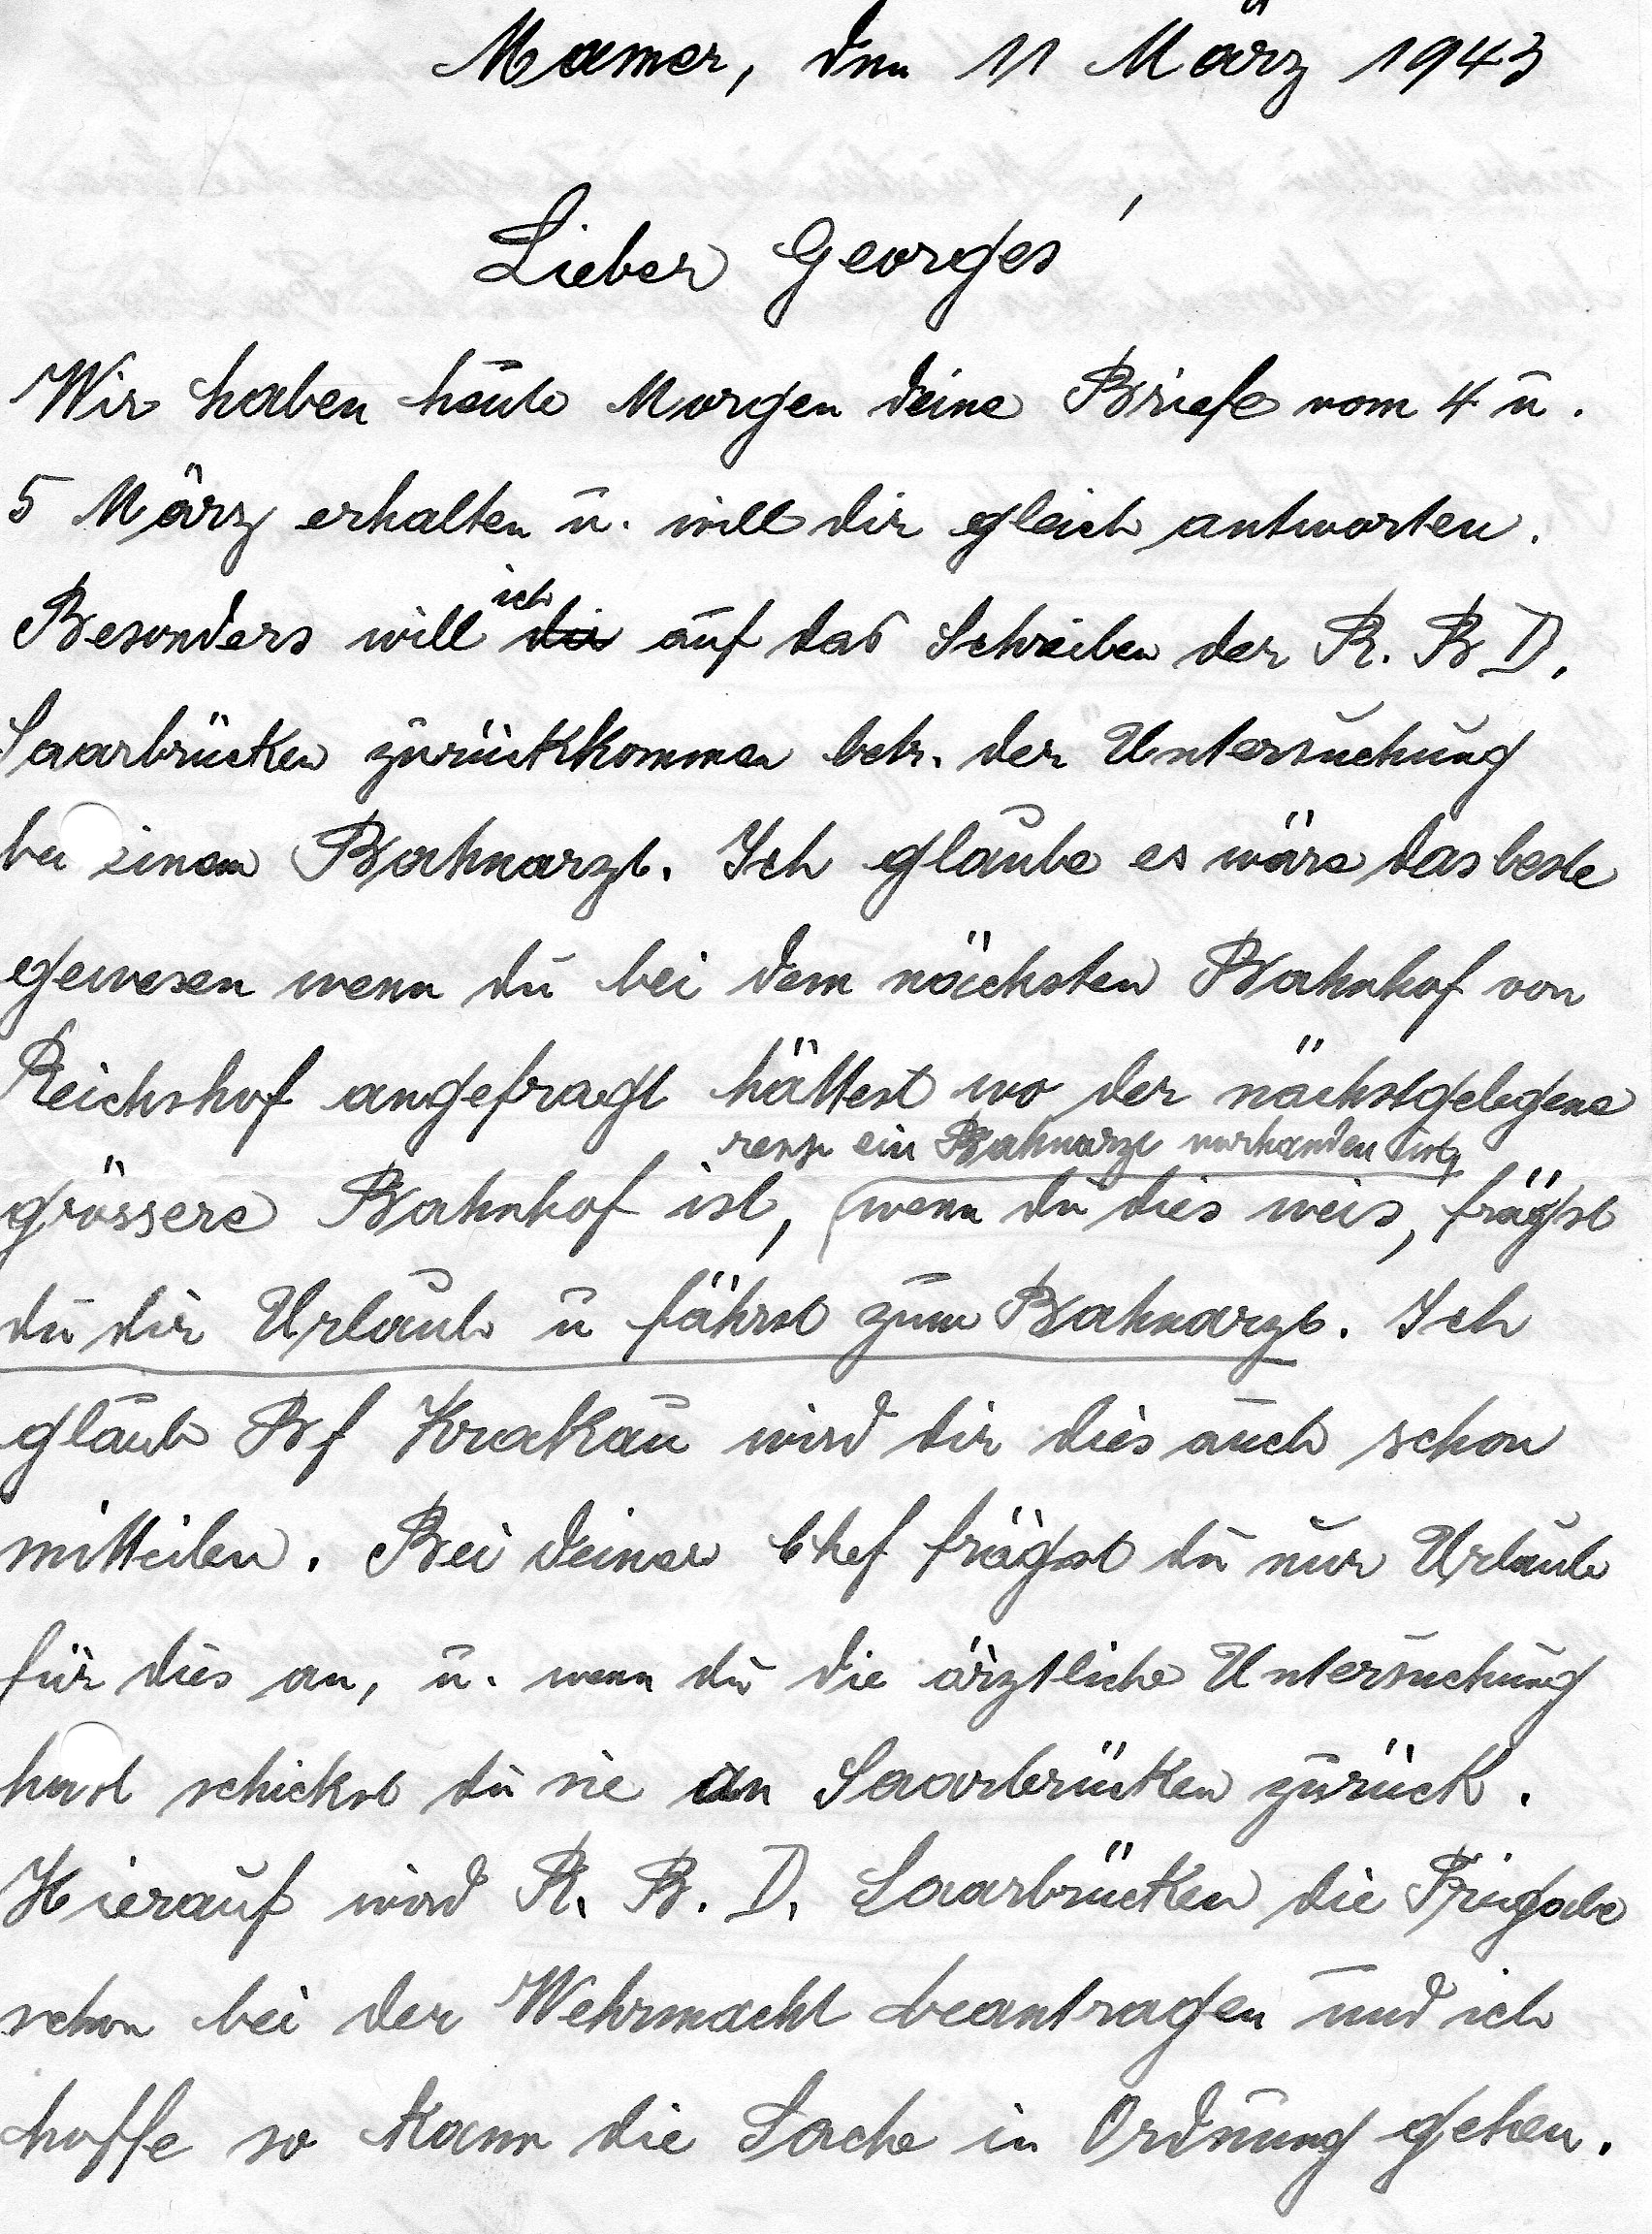 Mamer, den 11 März 1943
Lieber Georges'
Wir haben heute Morgen deine Briefe vom 4 u.
5 März erhalten u. will dir gleich antworten.
Besonders will ich dir auf das Schreiben der R. B D.
Saarbrücken zurückkommen betr. der Untersuchung
bei einem Bahnarzt. Ich glaube es wäre das beste
gewesen wenn du bei dem nächsten Bahnhof von
Reichshof angefragt hättest wo der nächstgelegene
resp ein Bahnarzt vorhanden ist,
grössere Bahnhof ist, wenn du dies weis, frägst
du dir Urlaub u fährst zum Bahnarzt. Ich
glaube Bf Krakau wird dir dies auch schon
mitteilen. Bei deiner Chef frägst du nur Urlaub
für dies an, u. wenn du die ärztliche Untersuchung
hast schickst du sie an Saarbrücken zurück.
Hierauf wird R. B. D. Saarbrücken die
schon bei der Wehrmacht beantragen und ich
hoffe so kann die Sache in Ordnung gehen.